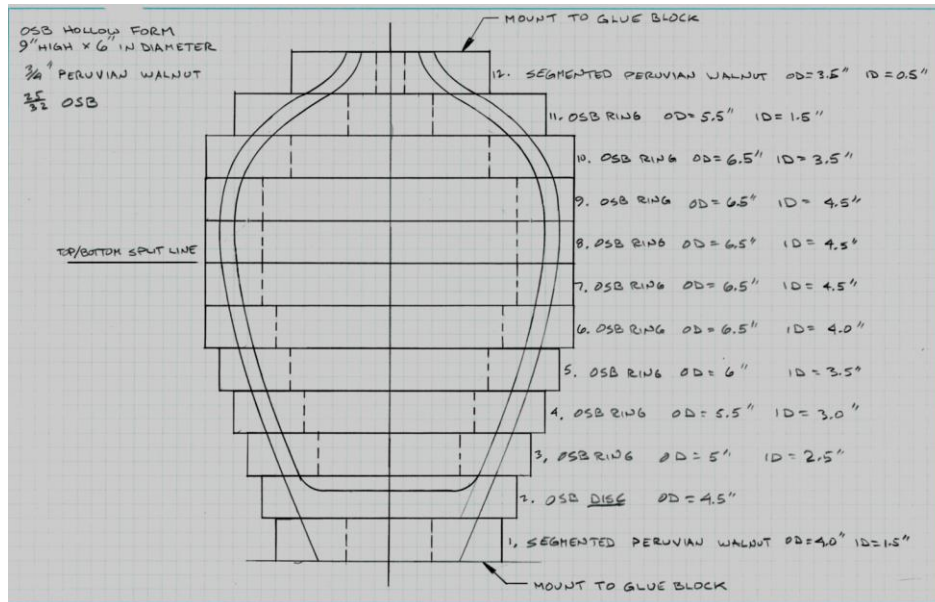 OSB HOLLOW FORM
9" HIGH × 6" IN DIAMETER
3/4" PERUVIAN WALNUT
25/32 OSB
MOUNT TO GLUE BLOCK
12. SEGMENTED PERUVIAN WALNUT OD=3.5" ID=0.5"
11. OSB RING OD=5.5" ID=1.5"
10. OSB RING OD=6.5" ID=3.5"
9. OSB RING OD=6.5" ID=4.5"
TOP/BOTTOM SPLIT LINE
8. OSB RING OD=6.5" ID=4.5"
7. OSB RING OD=6.5" ID=4.5"
6. OSB RING OD=6.5" ID=4.0"
5. OSB RING OD=6" ID=3.5"
4. OSB RING OD=5.5" ID=3.0"
3. OSB RING OD=5" ID=2.5"
2. OSB DISC OD=4.5"
1. SEGMENTED PERUVIAN WALNUT OD=4.0" ID=1.5"
MOUNT TO GLUE BLOCK